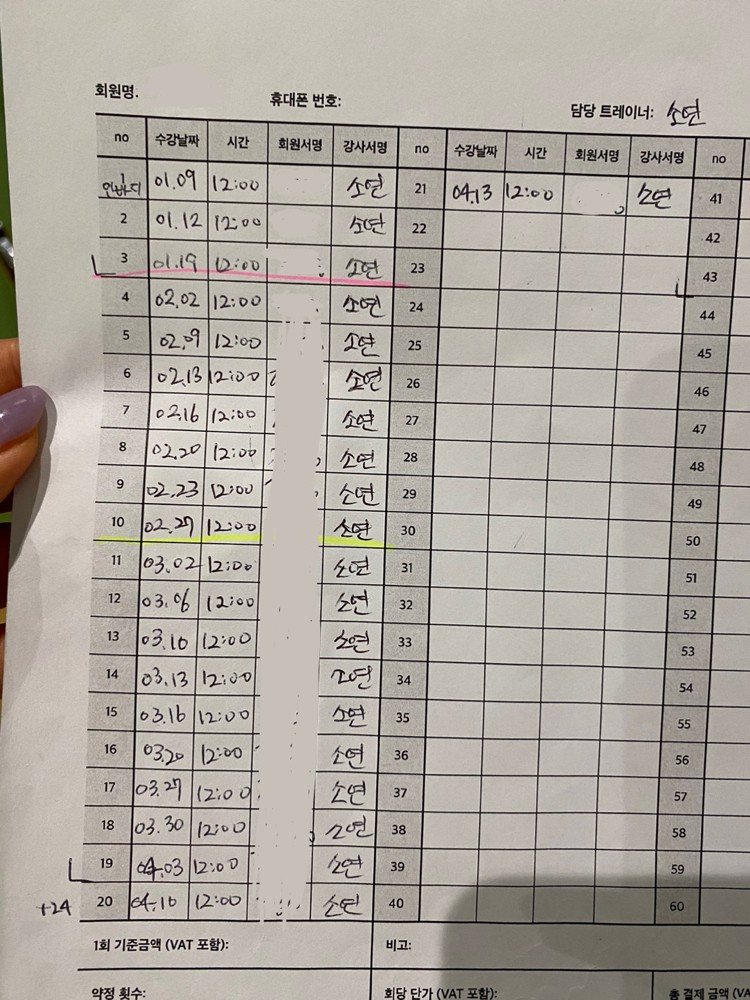 회원명.
휴대폰 번호:
담당 트레이너: 소연
no 수강날짜 시간 회원서명 강사서명 no 수강날짜 시간 회원서명 강사서명 no
1 인바디 01.09 12:00 소연 21 04.13 12:00 소연 41
2 01.12 12:00 소연 22 42
3 01.19 12:00 소연 23 43
4 02.02 12:00 소연 24 44
5 02.09 12:00 소연 25 45
6 02.13 12:00 소연 26 46
7 02.16 12:00 소연 27 47
8 02.20 12:00 소연 28 48
9 02.23 12:00 소연 29 49
10 02.27 12:00 소연 30 50
11 03.02 12:00 소연 31 51
12 03.06 12:00 소연 32 52
13 03.10 12:00 소연 33 53
14 03.13 12:00 소연 34 54
15 03.16 12:00 소연 35 55
16 03.20 12:00 소연 36 56
17 03.27 12:00 소연 37 57
18 03.30 12:00 소연 38 58
19 04.03 12:00 소연 39 59
+24 20 04.10 12:00 소연 40 60
1회 기준금액 (VAT 포함): 비고:
약정 횟수: 회당 단가 (VAT 포함): 총 결제 금액 (VA